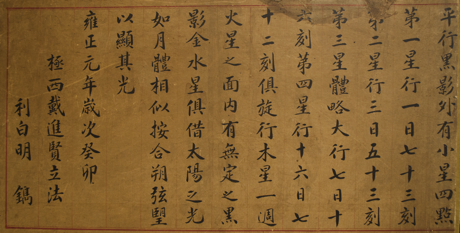 平行黑影外有小星四點
第一星行一日七十三刻
第二星行三日五十三刻
第三星體略大行七日十
六刻第四星行十六日七
十二刻俱旋行木星一週
火星之面内有無定之黑
影金水星俱借太陽之光
如月體相似按合朔弦望
以顯其光
雍正元年歲次癸卯
極西戴進賢立法
利白明 鐫